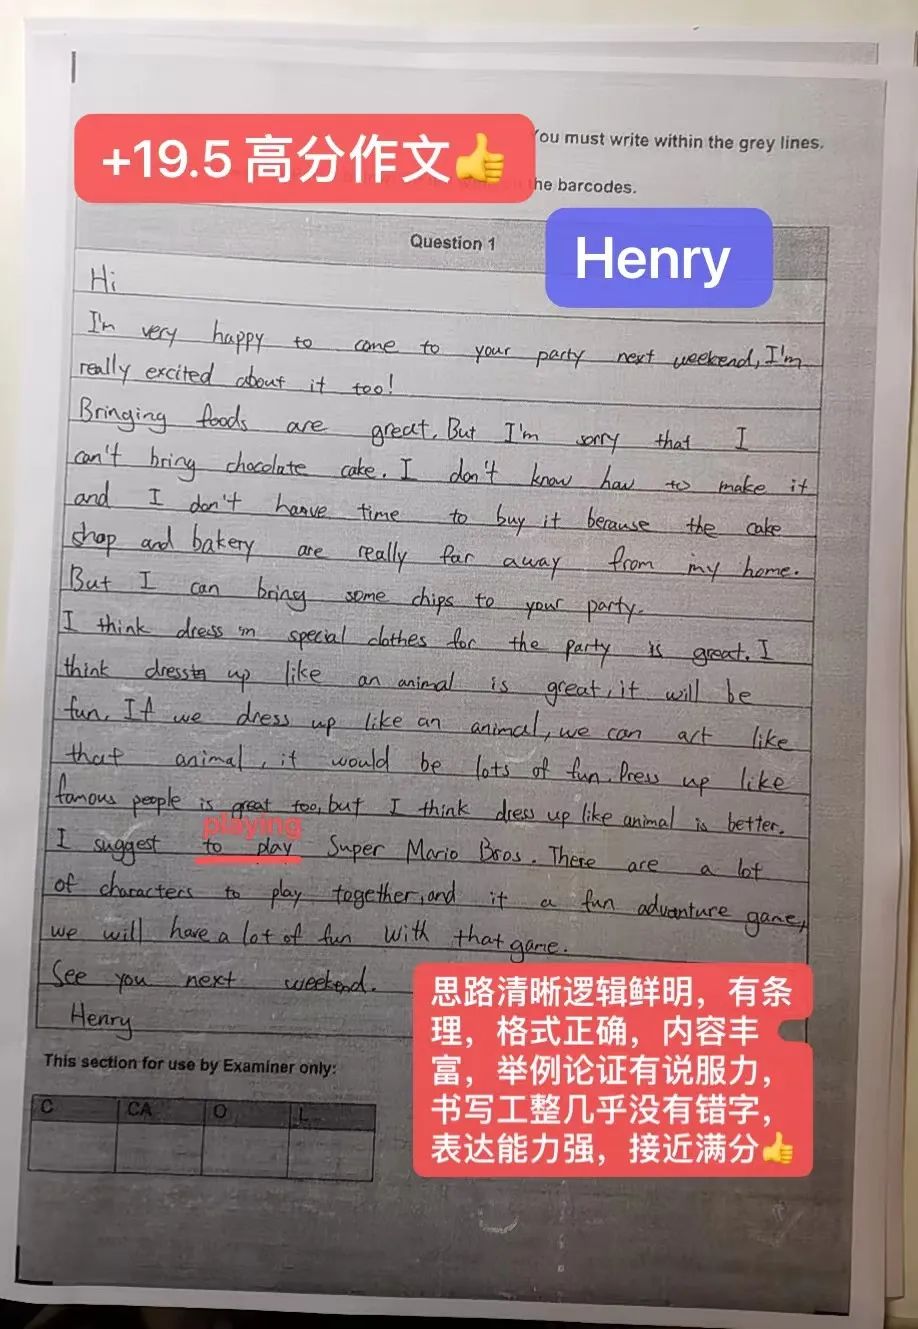 +19.5 高分作文👍
You must write within the grey lines.
the barcodes.
Henry
Question 1
Hi
I'm very happy to come to your party next weekend, I'm
really excited about it too!
Bringing foods are great. But I'm sorry that I
can't bring chocolate cake. I don't know how to make it
and I don't have time to buy it because the cake
shop and bakery are really far away from my home.
But I can bring some chips to your party.
I think dress in special clothes for the party is great. I
think dress up like an animal is great, it will be
fun. If we dress up like an animal, we can act like
that animal, it would be lots of fun. Dress up like
famous people is great too, but I think dress up like animal is better.
playing
I suggest to play Super Mario Bros. There are a lot
of characters to play together, and it a fun advanture game,
we will have a lot of fun with that game.
See you next weekend.
Henry
思路清晰逻辑鲜明，有条
理，格式正确，内容丰
富，举例论证有说服力，
书写工整几乎没有错字，
表达能力强，接近满分👍
This section for use by Examiner only:
C CA O L